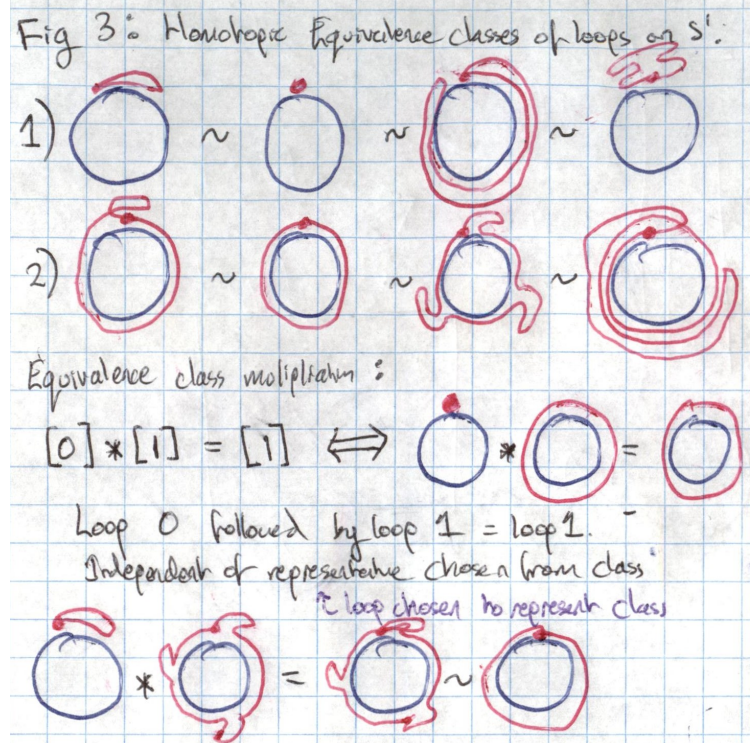 Fig 3: Homotopic Equivalence classes of loops on S¹.
1) ~ ~ ~
2) ~ ~ ~
Equivalence class :
[0] * [1] = [1] ⟺ * =
Loop 0 followed by loop 1 = loop 1.
Independent of representative chosen from class
↑ loop chosen to represent class
* = ~